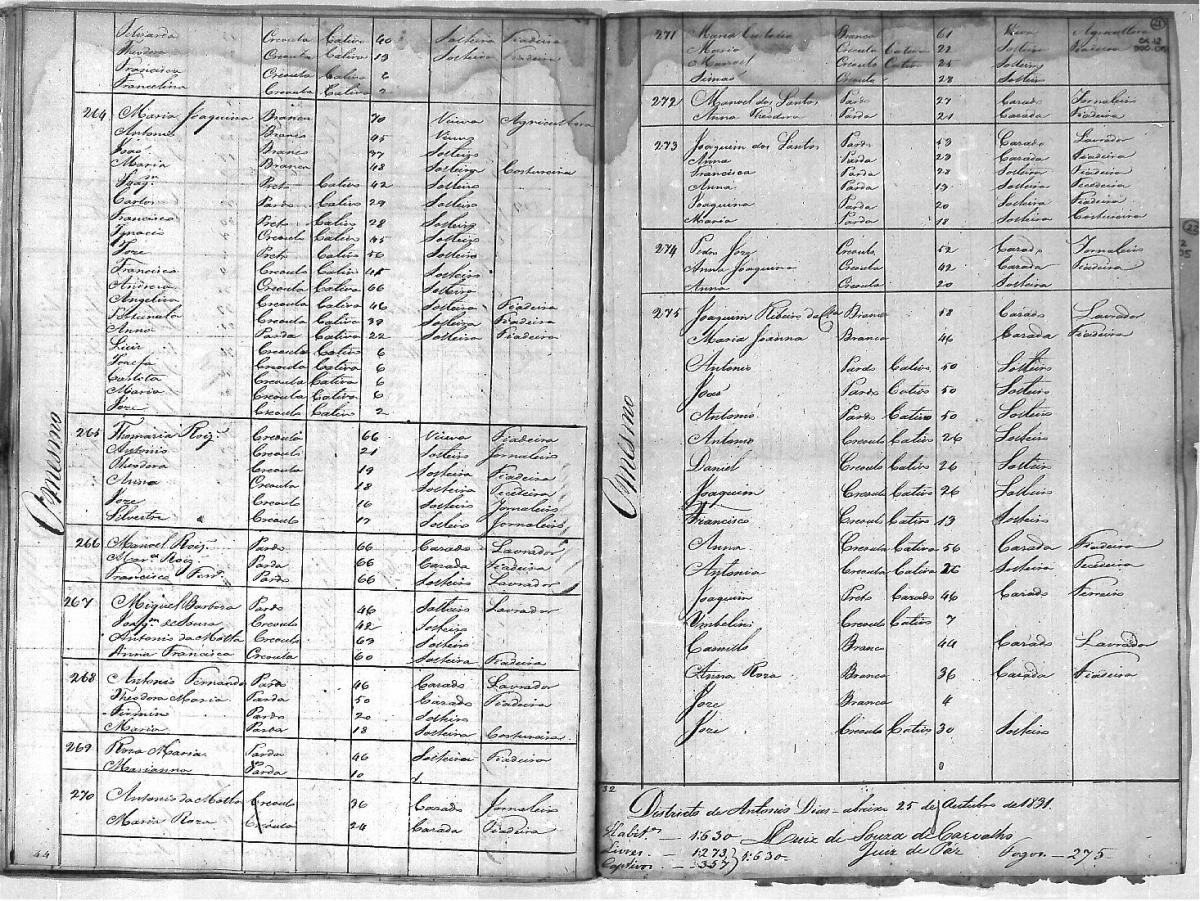 Felisarda Creoula Cativa 40 Solteira Fiadeira
Theodora Creoula Cativa 19 Solteira Fiadeira
Francisca Creoula Cativa 6
Francelina Creoula Cativa 2
264 Maria Joaquina Branca 70 Viuva Agricultora
Antonio Branco 45 Viuvo
João Branco 37 Solteiro
Maria Branca 48 Solteira Costureira
Joaqm Preto Cativo 42 Solteiro
Carlos Pardo Cativo 29 Solteiro
Francisco Preto Cativo 28 Solteiro
Ignacio Creoulo Cativo 45 Solteiro
Joze Preto Cativo 50 Solteiro
Francisco Creoulo Cativo 45 Solteiro
Andreza Creoula Cativa 66 Solteira
Angelica Creoula Cativa 46 Solteira Fiadeira
Fortunata Creoula Cativa 39 Solteira Fiadeira
Anna Parda Cativa 22 Solteira Fiadeira
Luiz Creoulo Cativo 6
Josefa Creoula Cativa 6
Creoula Cativa 6
Maria Creoula Cativa 6
Joze Creoulo Cativo 2
O mesmo
265 Thomazia Roiz. Creoula 66 Viuva Fiadeira
Antonio Creoulo 21 Solteiro Jornaleiro
Theodora Creoula 19 Solteira Fiadeira
Anna Creoula 18 Solteira Tecedeira
Joze Creoulo 16 Solteiro Jornaleiro
Silvestre Creoulo 17 Solteiro Jornaleiro
266 Manoel Roiz. Pardo 66 Cazado Lavrador
Mara. Roiz. Parda 66 Cazada Fiadeira
Francisco Ferr. Pardo 66 Solteiro Lavrador
267 Miguel Barboza Pardo 46 Solteiro Lavrador
Joaqm de Souza Creoulo 42 Solteiro
Antonio da Motta Creoulo 69 Solteiro
Anna Francisca Creoula 60 Solteira Fiadeira
268 Antonio Fernando Pardo 46 Cazado Lavrador
Theodora Maria Parda 50 Cazada Fiadeira
Firmin Pardo 20 Solteiro
Maria Parda 18 Solteira Costureira
269 Roza Maria Parda 46 Solteira Fiadeira
Marianna Parda 10
270 Antonio da Motta Creoulo 36 Cazado Jornaleiro
Maria Roza Creoula 24 Cazada Fiadeira
44
271 Maria Custodia Branca 61 Viuva Agricultora
Maria Creoula Cativa 22 Solteira Fiadeira
Manoel Creoulo Cativo 25 Solteiro
Simão Creoulo 28 Solteiro
272 Manoel dos Santos Pardo 27 Cazado Jornaleiro
Anna Theodora Parda 21 Cazada Fiadeira
273 Joaquim dos Santos Pardo 49 Cazado Lavrador
Anna Parda 29 Cazada Fiadeira
Francisca Parda 28 Solteira Fiadeira
Anna Parda 19 Solteira Tecedeira
Joaquina Parda 20 Solteira Fiadeira
Maria Parda 18 Solteira Costureira
274 Pedro Joze Creoulo 52 Cazado Jornaleiro
Anna Joaquina Creoula 42 Cazada Fiadeira
Anna Creoula 20 Solteira
275 Joaquim Ribeiro da Branco 18 Cazado Lavrador
Maria Joanna Branca 46 Cazada Fiadeira
Antonio Pardo Cativo 50 Solteiro
José Pardo Cativo 50 Solteiro
Antonio Pardo Cativo 50 Solteiro
Antonio Creoulo Cativo 26 Solteiro
Daniel Creoulo Cativo 26 Solteiro
Joaquim Creoulo Cativo 26 Solteiro
Francisco Creoulo Cativo 13 Solteiro
Anna Creoula Cativa 56 Cazada Fiadeira
Antonia Creoula Cativa 26 Solteira Fiadeira
Joaquim Preto Cazado 46 Cazado Ferreiro
Umbelini Creoulo Cativo 7
Camillo Branco 44 Cazado Lavrador
Anna Roza Branca 36 Cazada Fiadeira
Joze Branco 4
Joze Creoulo Cativo 30 Solteiro
O mesmo
32
Districto de Antonio Dias abaixo 25 de Outubro de 1831.
Habites — 1:630 Muiz de Souza de Carvalho
Livres — 1273 } 1:630 Juiz de Páz Fogos — 275
Captivos — 357